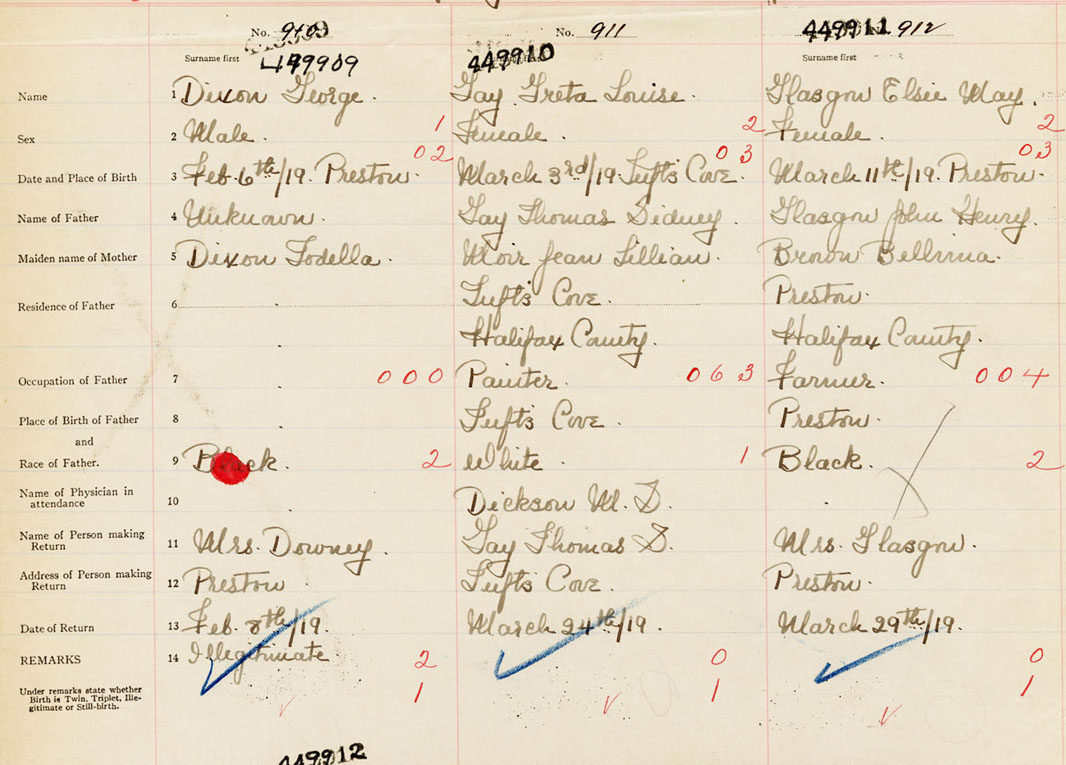 No. 910 No. 911 449911 912
Surname first 449909 449910 Surname first
Name 1 Dixon George. Gay Greta Louise. Glasgow Elsie May.
Sex 2 Male. 1 Female. 2 Female. 2
Date and Place of Birth 3 Feb. 6th/19. Preston. 02 March 3rd/19. Tufts Cove. 03 March 11th/19. Preston. 03
Name of Father 4 Unknown. Gay Thomas Sidney. Glasgow John Henry.
Maiden name of Mother 5 Dixon Fodella. Moir Jean Lillian. Brown
Residence of Father 6 Tufts Cove. Preston.
Halifax County. Halifax County.
Occupation of Father 7 000 Painter. 063 Farmer. 004
Place of Birth of Father 8 Tufts Cove. Preston.
and
Race of Father. 9 Black. 2 White. 1 Black. 2
Name of Physician in
attendance 10 Dickson M. D.
Name of Person making
Return 11 Mrs. Downey. Gay Thomas S. Mrs. Glasgow.
Address of Person making
Return 12 Preston Tufts Cove. Preston.
Date of Return 13 Feb. 8th/19. March 24th/19. March 29th/19.
REMARKS 14 Illegitimate 2 0 0
Under remarks state whether
Birth is Twin, Triplet, Ille-
gitimate or Still-birth. 1 1 1
449912